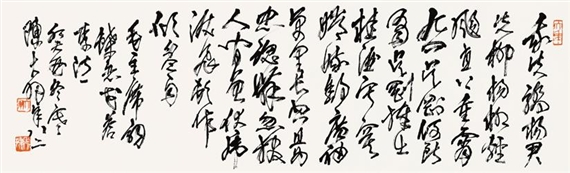 我失骄杨君
失柳杨柳轻
飏直上重霄
九问讯吴刚何所
有吴刚捧出
桂花酒寂寞
嫦娥舒广袖
万里长空且为
忠魂舞忽报
人间曾伏虎
泪飞顿作
倾盆雨
毛主席词
蝶恋花答
李淑一
陈大羽